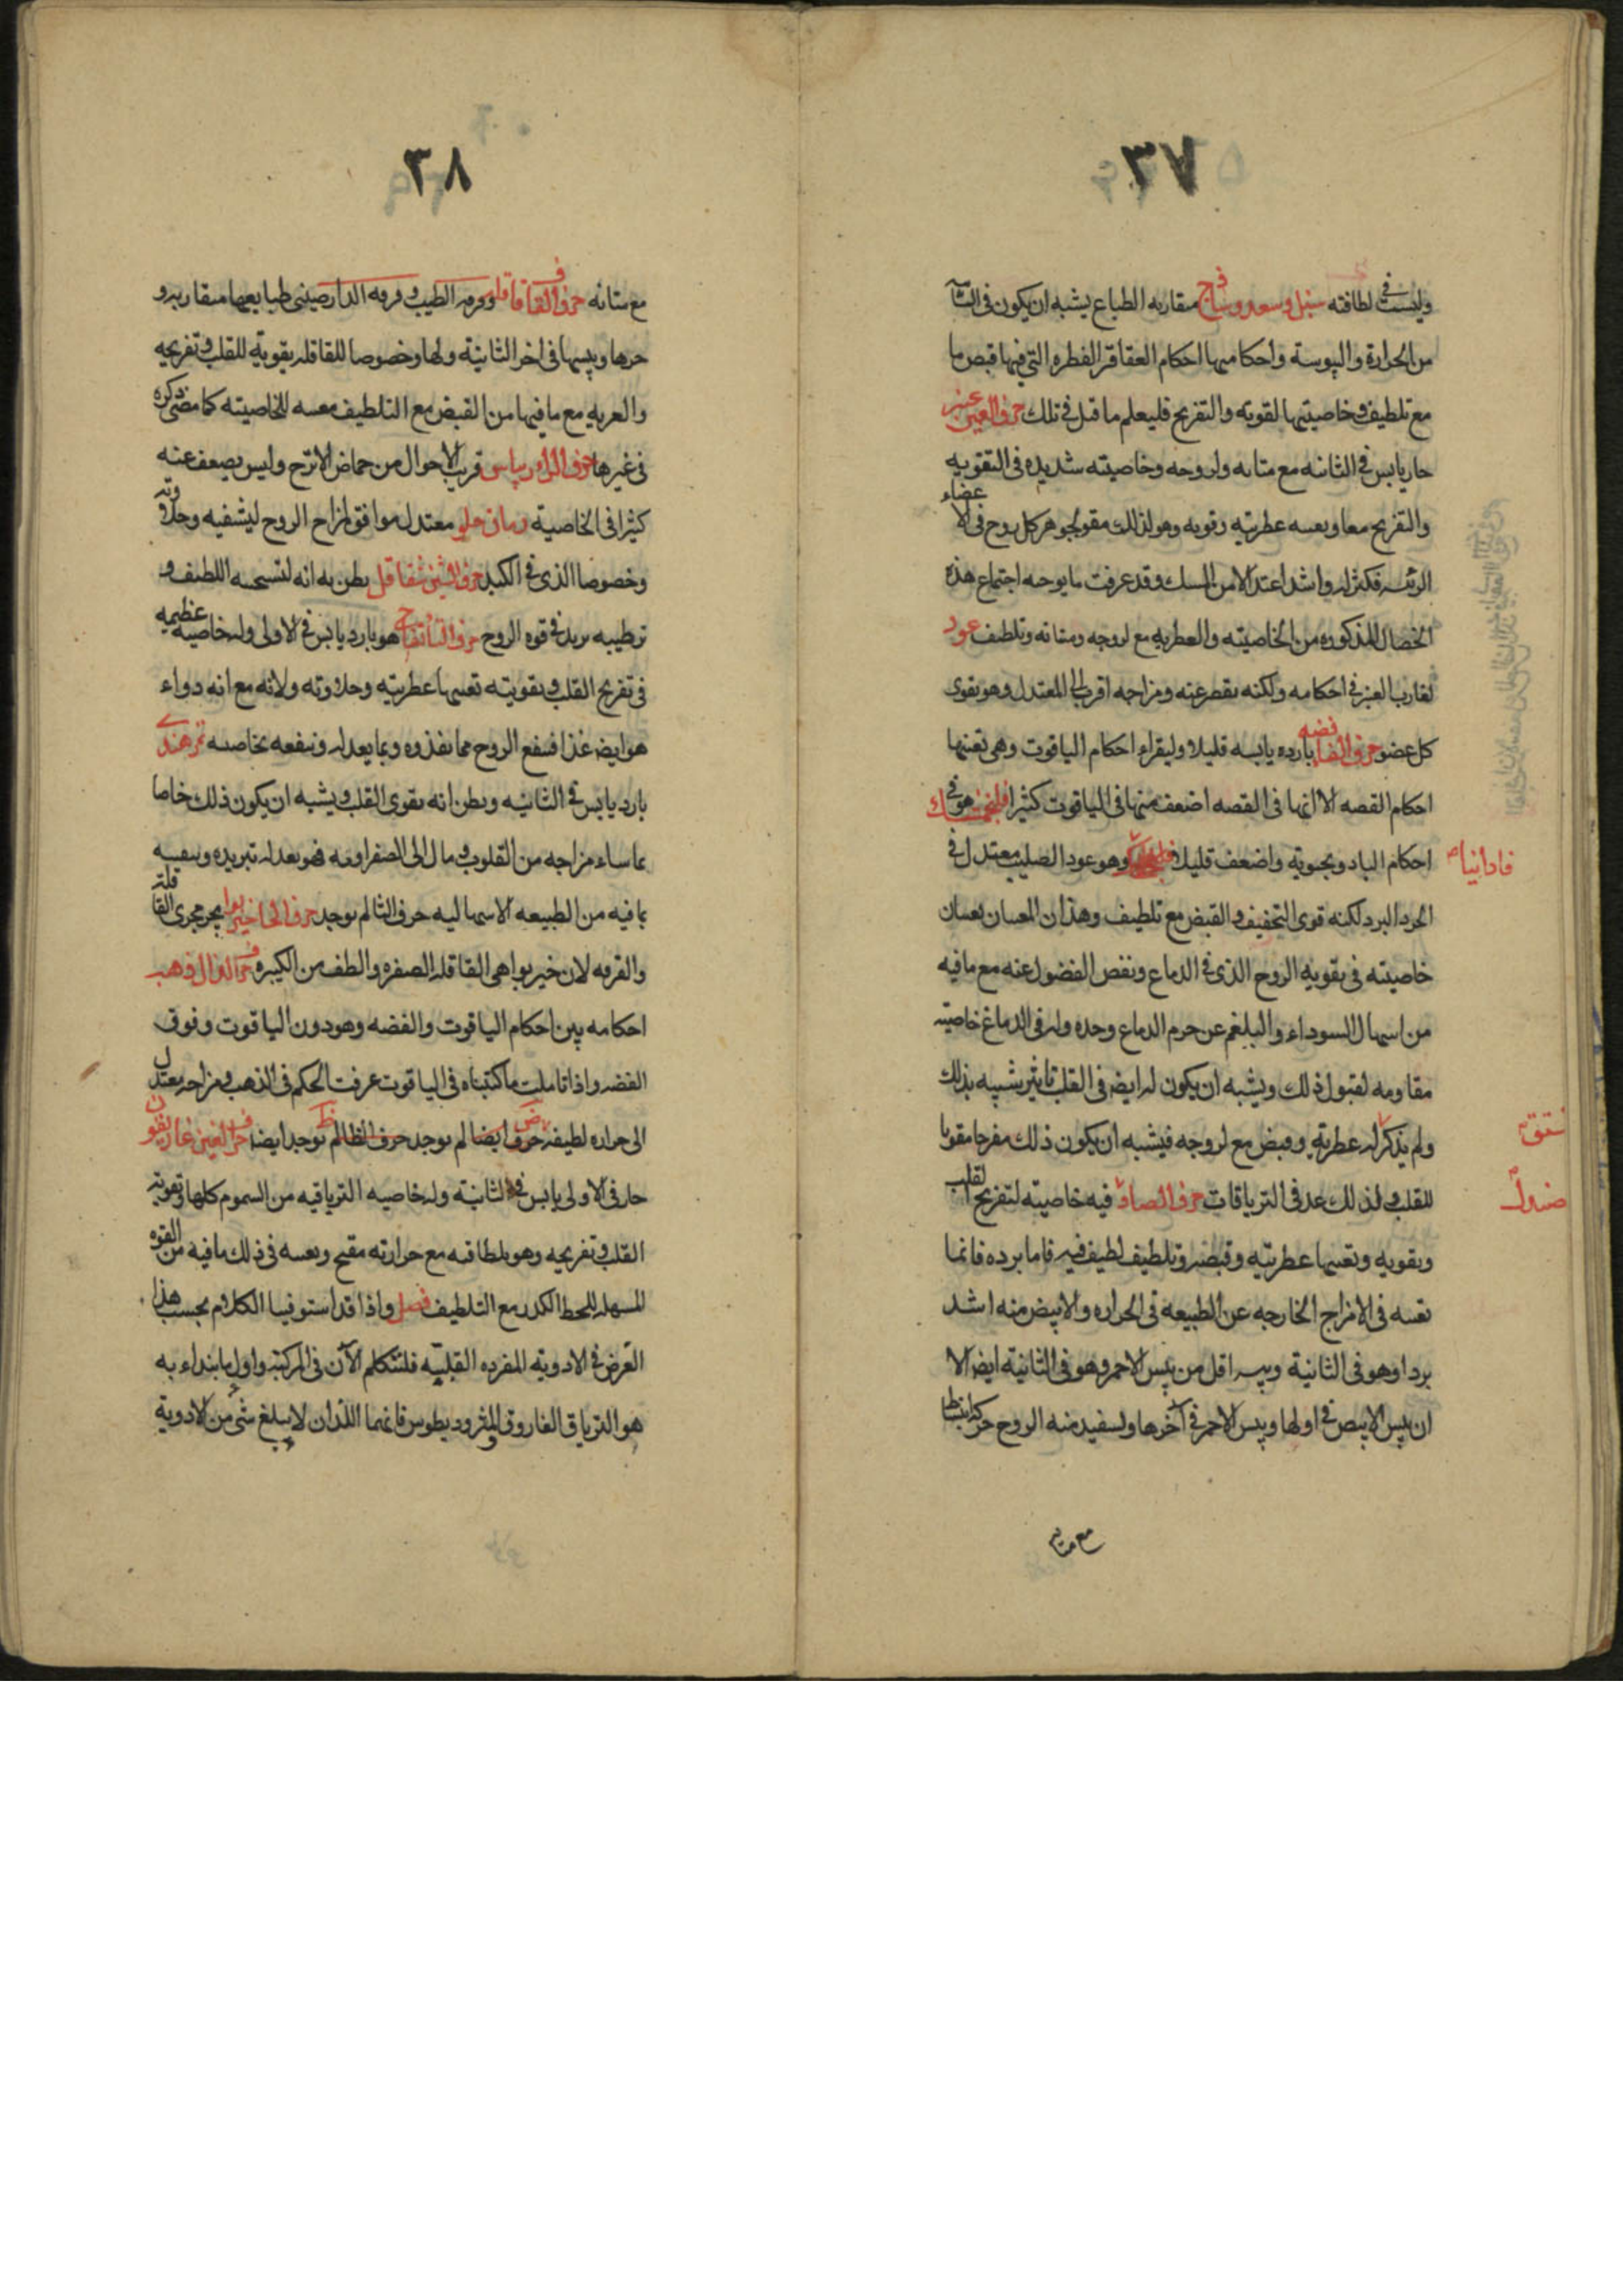 ٣٧
وليست في لطافته سنبل وسعد وساذج متقاربه الطباع يشبه ان يكون في الثانيه
من الحرارة واليبوسة واحكامها احكام العقاقر الفطره التي فيها قبض ما
مع تلطيف وخاصيتها لقويه والتفريح فليعلم ما قيل في تلك حرف العين عنبر
حار يابس في الثانيه مع متانه ولزوجه وخاصيته شديده في التقويه
والتفريح معا ويعينه عطريته وقويه وهو لذلك مقو لجوهر كل روح في الاعضاء
الرئيسه فكثر له واشد اعتدالا من المسك وقد عرفت ما يوجبه اجتماع هذه
الخصال المذكوره من الخاصيته والعطريه مع لزوجه ومتانه وتلطيف عود
يقارب العنبر في احكامه ولكنه يقصر عنه ومزاجه اقرب الى المعتدل وهو يقوى
كل عضو حرف الفاء فضه بارده يابسه قليلا وليقراء احكام الياقوت وهي تعنيها
احكام الفضه الا انها في الفضه اضعف منها في الياقوت كثيرا فلنجمشك هو في
احكام البادرنجبويه واضعف قليلا وهو عود الصليب معتدل في
الحر والبرد لكنه قوى التجفيف والقبض مع تلطيف وهذان المعينان يعينان
خاصيته في تقويه الروح الذي في الدماغ ونفض الفضول عنه مع ما فيه
من اسهال السوداء والبلغم عن جرم الدماغ وحده وله في الدماغ خاصيته
مقاومه لقبول ذلك ويشبه ان يكون له ايضا في القلب تاثير شبيه بذلك
ولم يذكر له عطريه وقبض مع لزوجه فيشبه ان يكون ذلك مفرحا مقويا
للقلب ولذلك عد في الترياقات حرف الصاد فيه خاصيته لتفريح القلب
وتقويه وتعينها عطريته وقبضه وتلطيف لطيف فيه فاما برده فانما
تعينه في الامزاج الخارجه عن الطبيعه في الحراره والابيض منه اشد
بردا وهو في الثانية ويبسه اقل من يبس الاحمر وهو في الثانية ايضا الا
ان يبس الابيض في اولها ويبس الاحمر في آخرها وتستفيد منه الروح حركه انبساط
مع متانه
فاوانيا
صندل
٣٨
مع متانه حرف القاف قاقله وقرفه الطيب وقرفه الدارصيني طبايعها متقاربه و
حرها ويبسها في اخر الثانية ولها وخصوصا للقاقله تقوية للقلب وتفريحه
والعريه مع ما فيها من القبض مع التلطيف معينه للخاصيته كما مضى ذكره
في غيرها حرف الراء ريباس قريب الاحوال من حماض الاترج وليس يضعف عنه
كثيرا في الخاصية رمان حلو معتدل موافق لمزاج الروح ليشفيه وحلاوته
وخصوصا الذي في الكبد حرف الشين شقاقل يظن به انه لتسخينه اللطيف و
ترطيبه يزيد في قوه الروح حرف التاء تفاح هو بارد يابس في الاولى وله خاصيه عظيمه
في تفريح القلب وتقويته تعينها عطريته وحلاوته ولانه مع انه دواء
هو ايضا غذا فينفع الروح مما يغذوه وبما يعدله وينفعه بخاصيته تمر هندي
بارد يابس في الثانيه ويظن انه يقوى القلب ويشبه ان يكون ذلك خاصا
بما ساء مزاجه من القلوب ومال الى الصفراويه فهو يعدله تبريده وينقيه
بما فيه من الطبيعه الاسهاليه حرف الثا لم يوجد حرف الخا خير بوا يجرى مجرى القاقله
والقرفه لان خير بوا هي القاقله الصغره والطف من الكبيره حرف الذال ذهب
احكامه بين احكام الياقوت والفضه وهو دون الياقوت وفوق
الفضه واذا تاملت ما كتبناه في الياقوت عرفت الحكم في الذهب ومزاجه معتدل
الى حراره لطيفه حرف الضاد ايضا لم يوجد حرف الظا لم يوجد ايضا حرف الغين غاريقون
حار في الاولى يابس في الثانيته وله خاصيه الترياقيه من السموم كلها وتقويه
القلب وتفريحه وهو بلطافته مع حرارته مفتح ويعينه في ذلك ما فيه من القوه
المسهله للخلط الكدر مع التلطيف فصل واذا قد استوفينا الكلام بحسب هذا
الغرض في الادوية المفرده القلبية فلنتكلم الآن في المركبة واول ما ابتداء به
هو الترياق الفاروق والمثروديطوس فانهما اللذان لا يبلغ شيء من الادوية